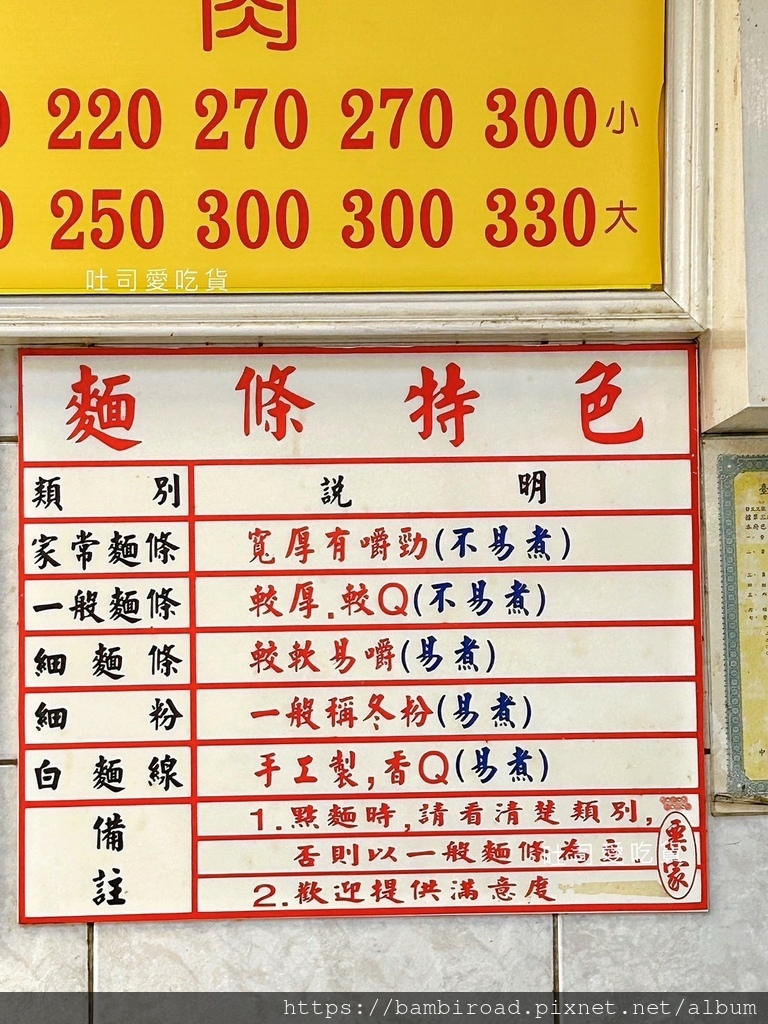 肉
0 220 270 270 300 小
0 250 300 300 330 大
吐司愛吃貨
麵條特色
類別 説明
家常麵條 寬厚有嚼勁(不易煮)
一般麵條 較厚.較Q(不易煮)
細麵條 較軟易嚼(易煮)
細粉 一般稱冬粉(易煮)
白麵線 手工製,香Q(易煮)
備註 1.點麵時,請看清楚類別,
否則以一般麵條為主.
2.歡迎提供滿意度
吐司愛吃貨
https://bambiroad.pixnet.net/album